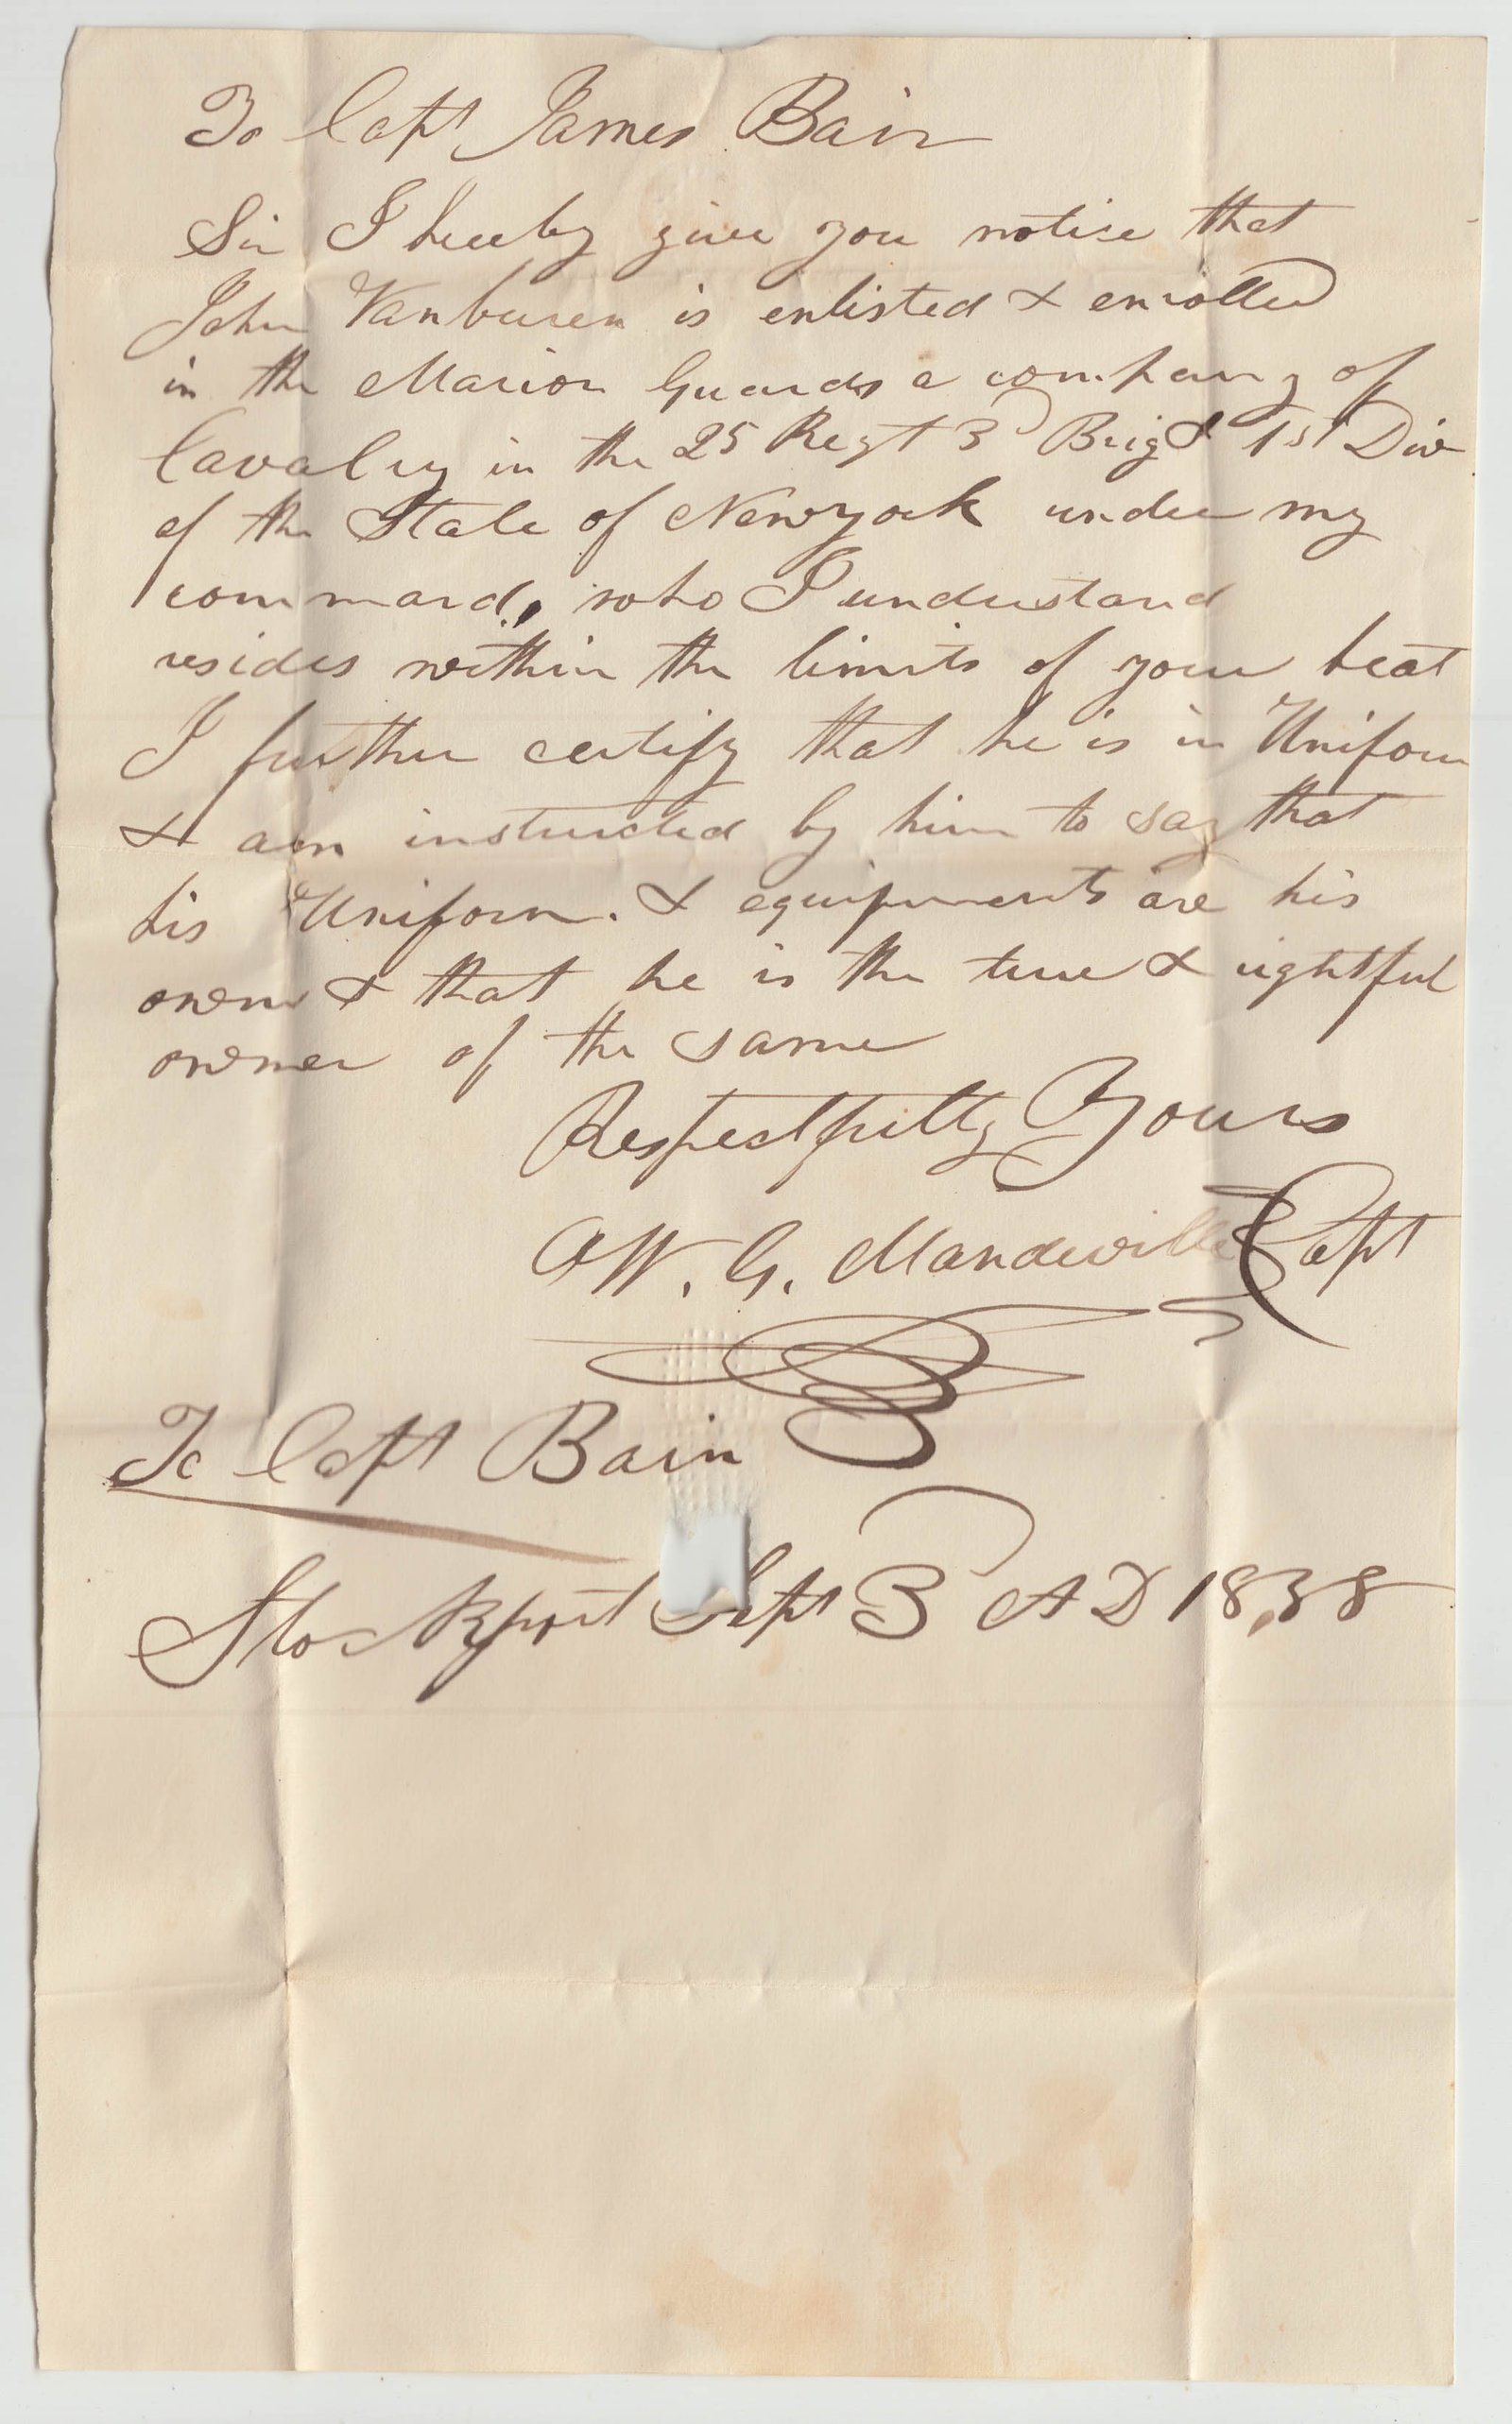 To Capt James Bain
Sir I hereby give you notise that
John Vanburen is enlisted & enrolled
in the Marion Guards a company of
Cavalry in the 25 Regt 3d Brigd 1st Div
of the State of Newyork under my
command, who I understand
resides within the limits of your beat
I further certify that he is in Uniform
& am instructed by him to say that
his Uniform. & equipments are his
owne & that he is the true & rightful
owner of the same
Respectfully Yours
W. G. Mandeville Capt
To Capt Bain
Stockport Sept 3d AD 1838